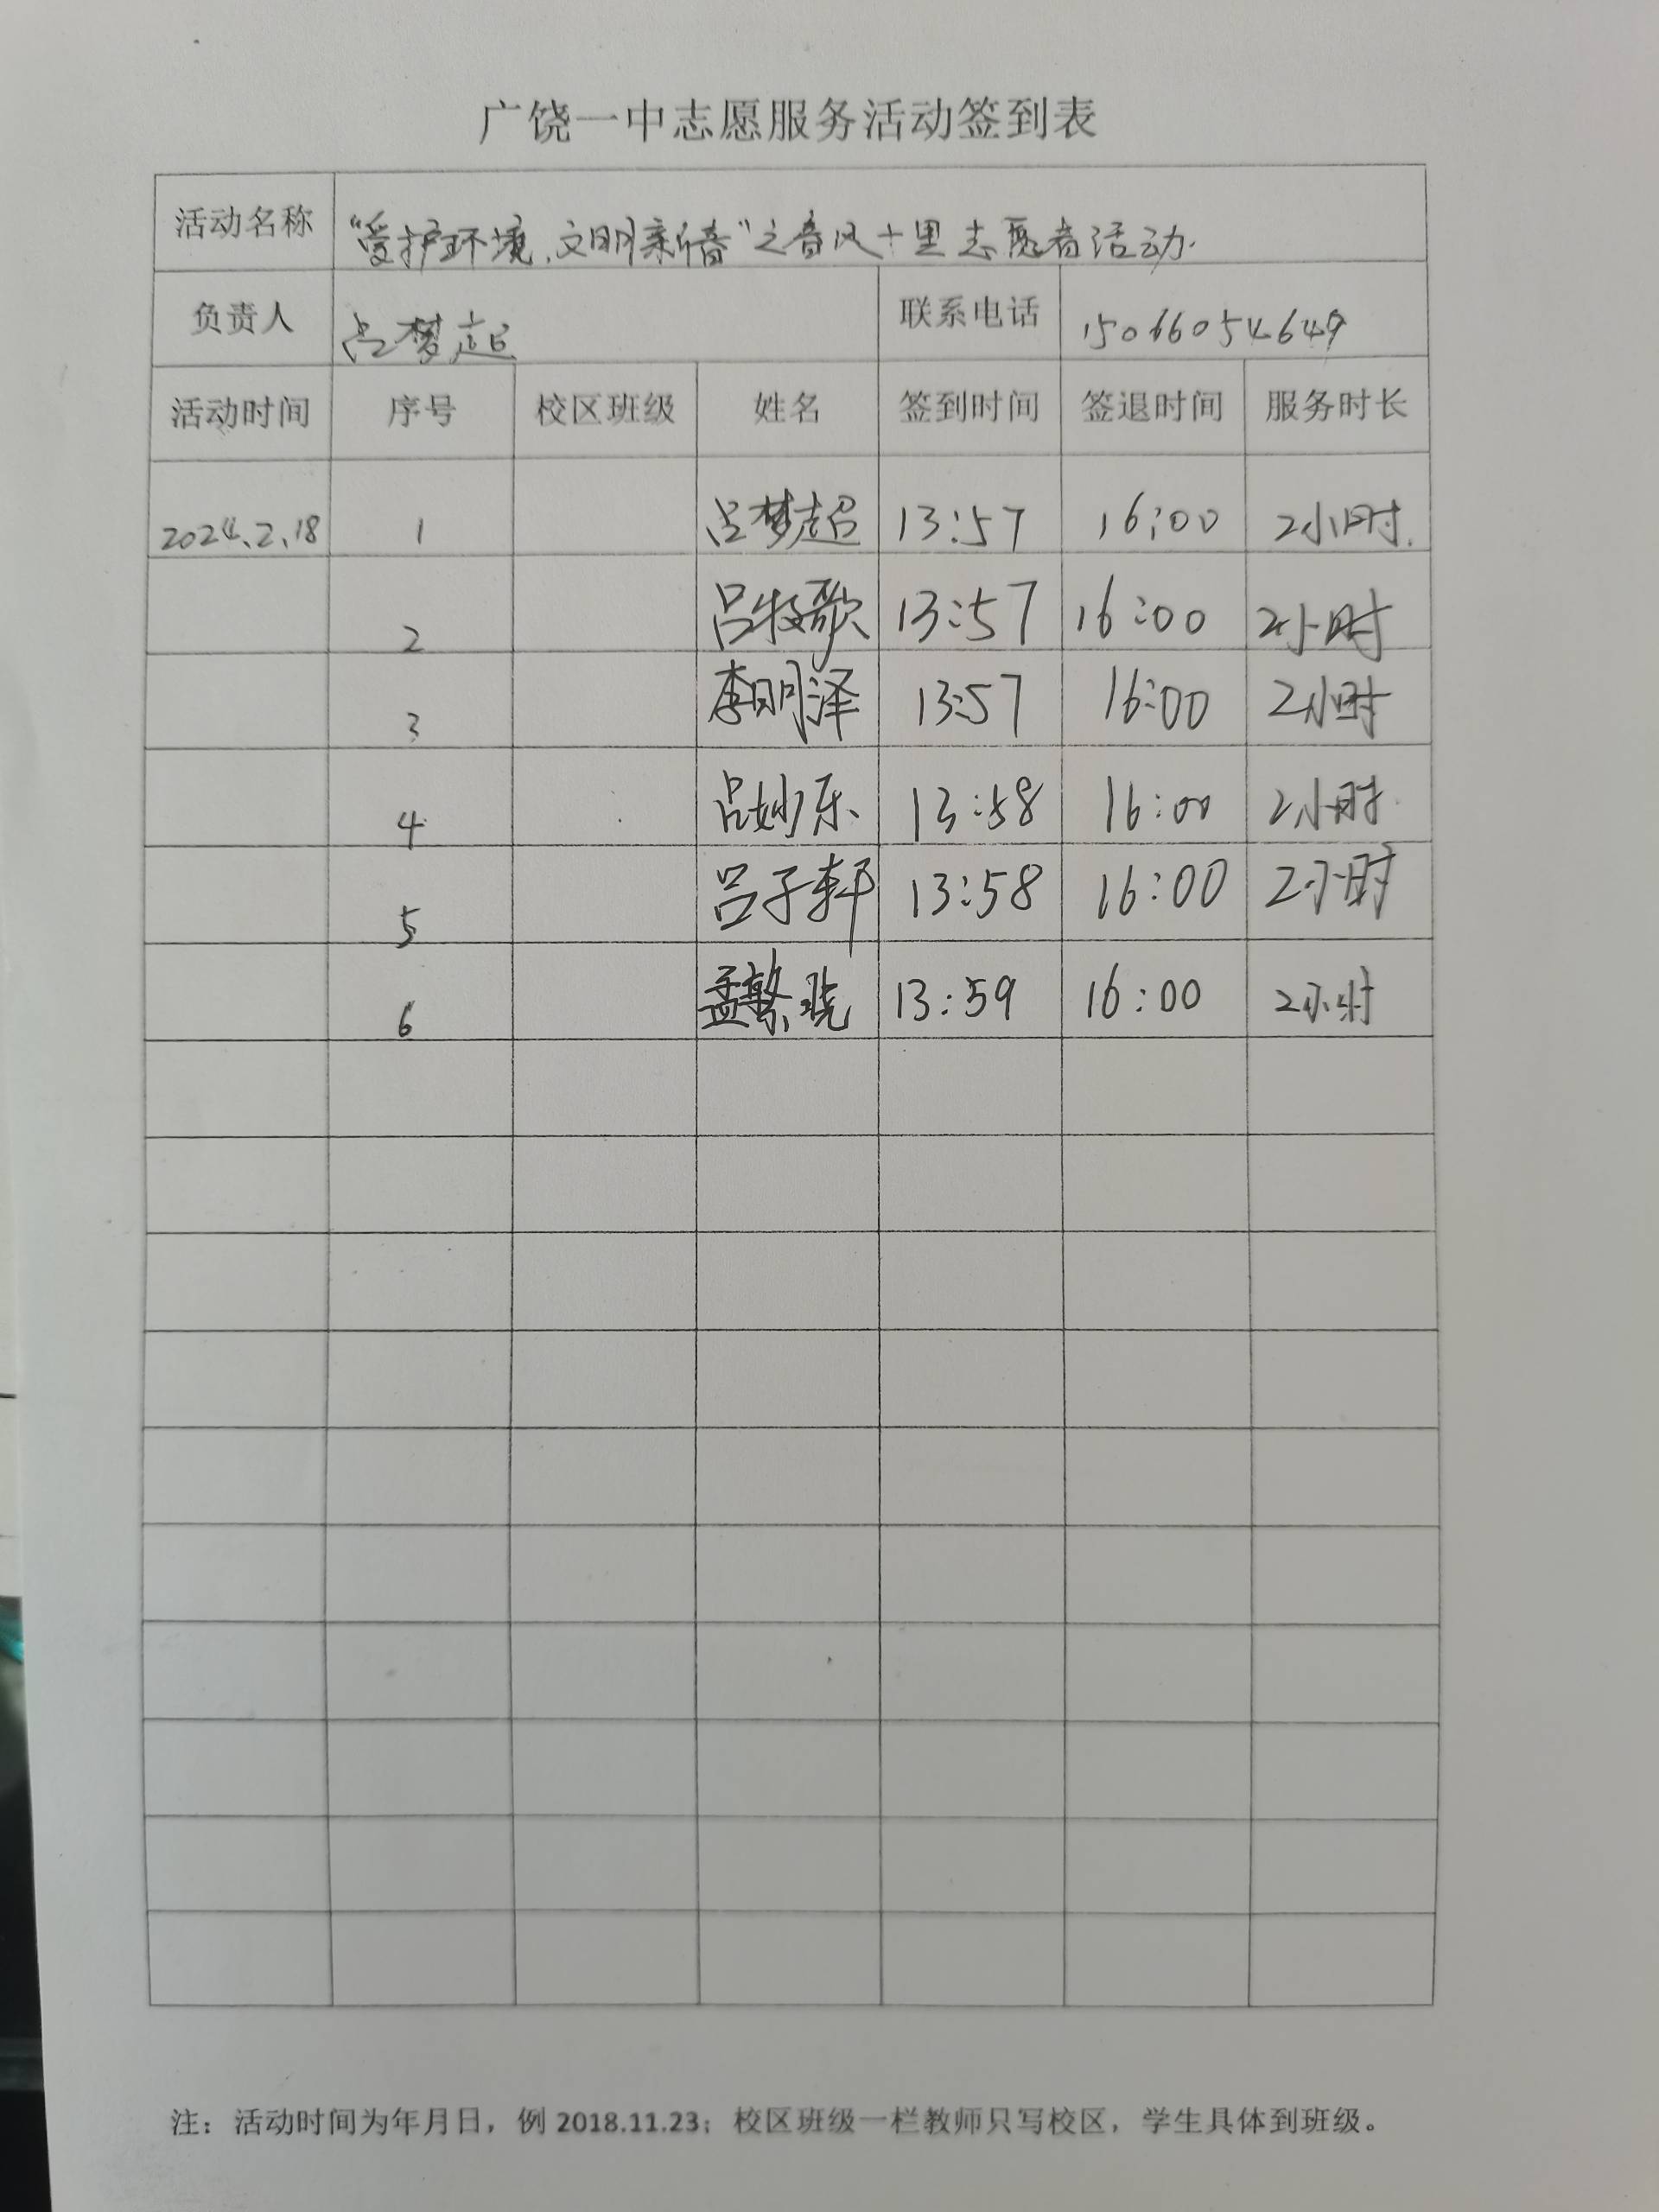 广饶一中志愿服务活动签到表
活动名称 “爱护环境、文明新春”之春风十里志愿者活动.
负责人 吕梦超 联系电话 15066054649
活动时间 序号 校区班级 姓名 签到时间 签退时间 服务时长
2024.2.18 1 吕梦超 13:57 16:00 2小时.
2 吕牧歌 13:57 16:00 2小时
3 李明泽 13:57 16:00 2小时
4 吕妙乐 13:58 16:00 2小时
5 吕子轩 13:58 16:00 2小时
6 孟繁晓 13:59 16:00 2小时
注：活动时间为年月日，例 2018.11.23；校区班级一栏教师只写校区，学生具体到班级。